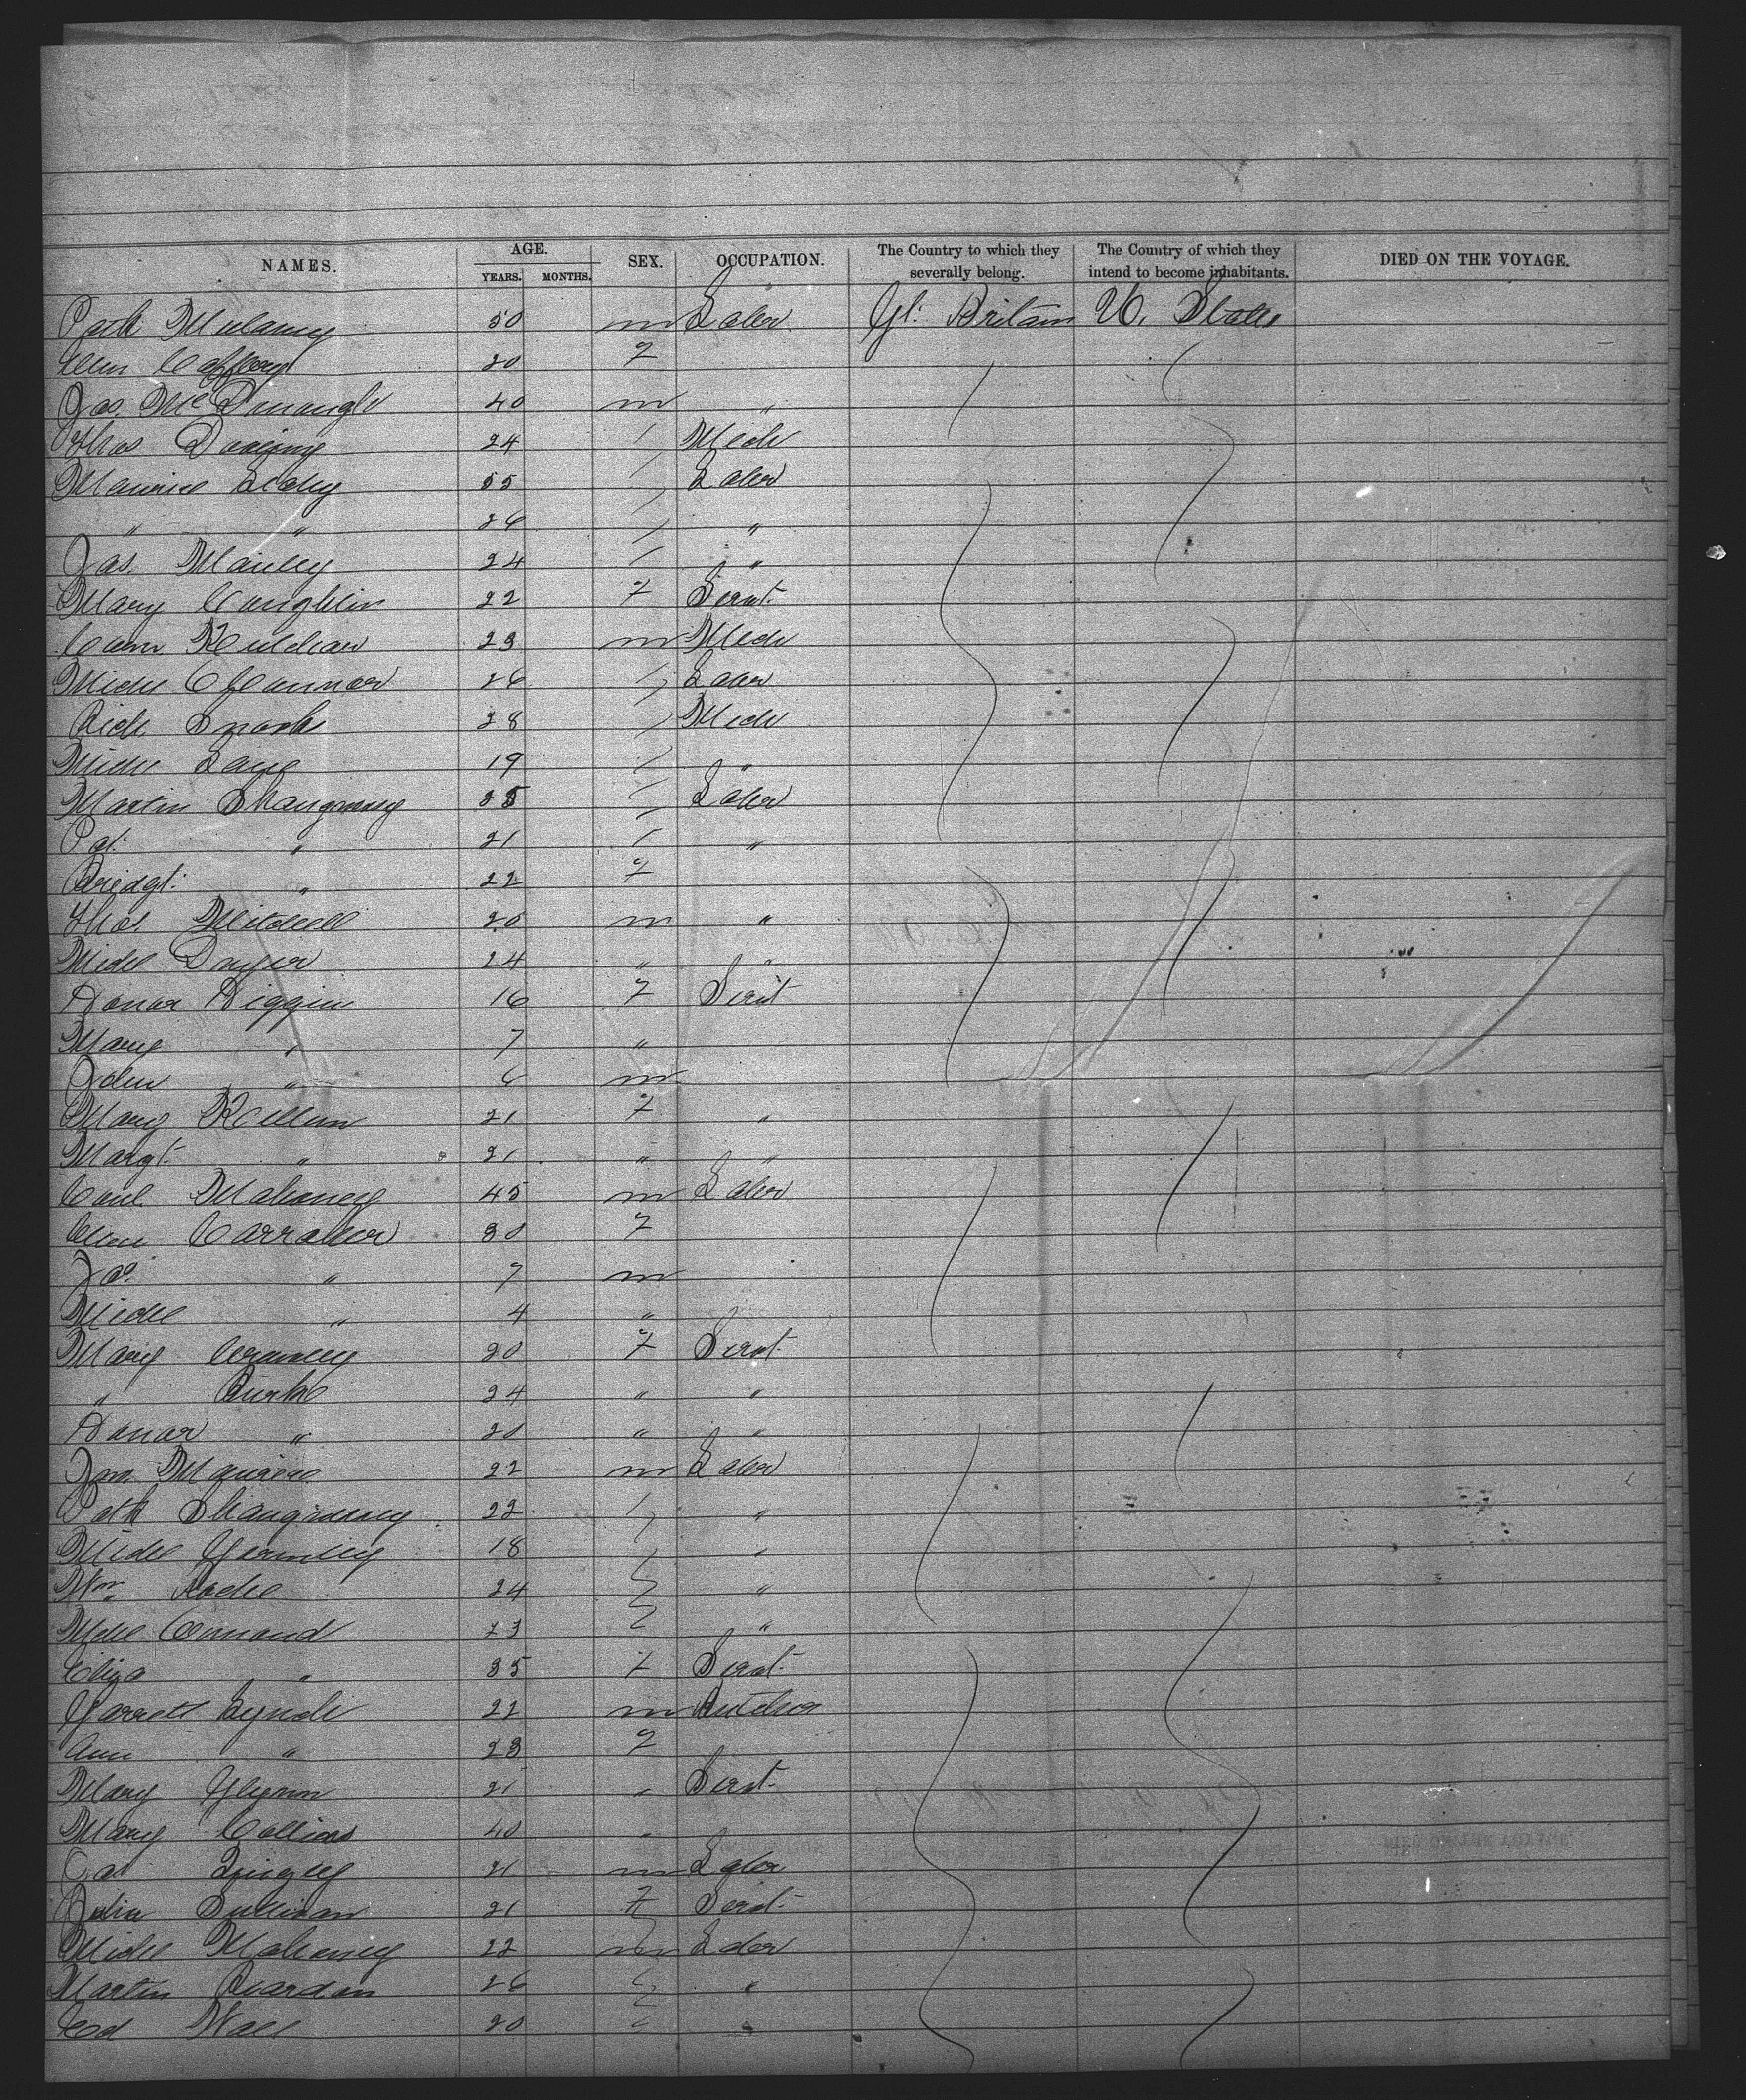 NAMES. AGE. YEARS. MONTHS. SEX. OCCUPATION. The Country to which they severally belong. The Country of which they intend to become inhabitants. DIED ON THE VOYAGE.
Patk Mulaney 50 m Labor. Gt: Britain U. States
Ellen Caffery 20 F
Jas. McDonough 40 m "
Thos 24 Mech
Maurice Leahy 55 Labor
" " 26 "
Jas. Manley 24 "
Mary Coughlin 22 F Servt.
23 m Mech
Michl O'Connor 26 Labor
Rich 28 Mech
Michl Lane 19 "
Martin Shaugnessy 25 Labor
Pat: " 21 "
Bridgt: " 22 F
Thos. Mitchell 20 m "
Michl Dwyer 24 " "
Honor Higgins 16 F Servt
Mary " 7 "
John " 6 m
Mary Killeen 21 F "
Margt. " 21 " "
Mahoney 45 m Labor
Ellen Carraher 30 F
Jas. " 7 m
Michl " 4 "
Mary 20 F Servt.
" Burke 24 " "
Honor " 20 " "
22 m Labor
Patk Shaugnessy 22 "
Michl 18 "
Wm Roche 24 "
Michl 23 "
Eliza " 35 F Servt.
Garrett Lynch 22 m Butcher
Ann " 23 F
Mary Glynn 21 " Servt.
Mary Collins 40 "
21 m Labor
Julia Sullivan 21 F Servt.
Michl Mahoney 22 m Labor
Martin Reardon 26 "
Ed Wall 20 "